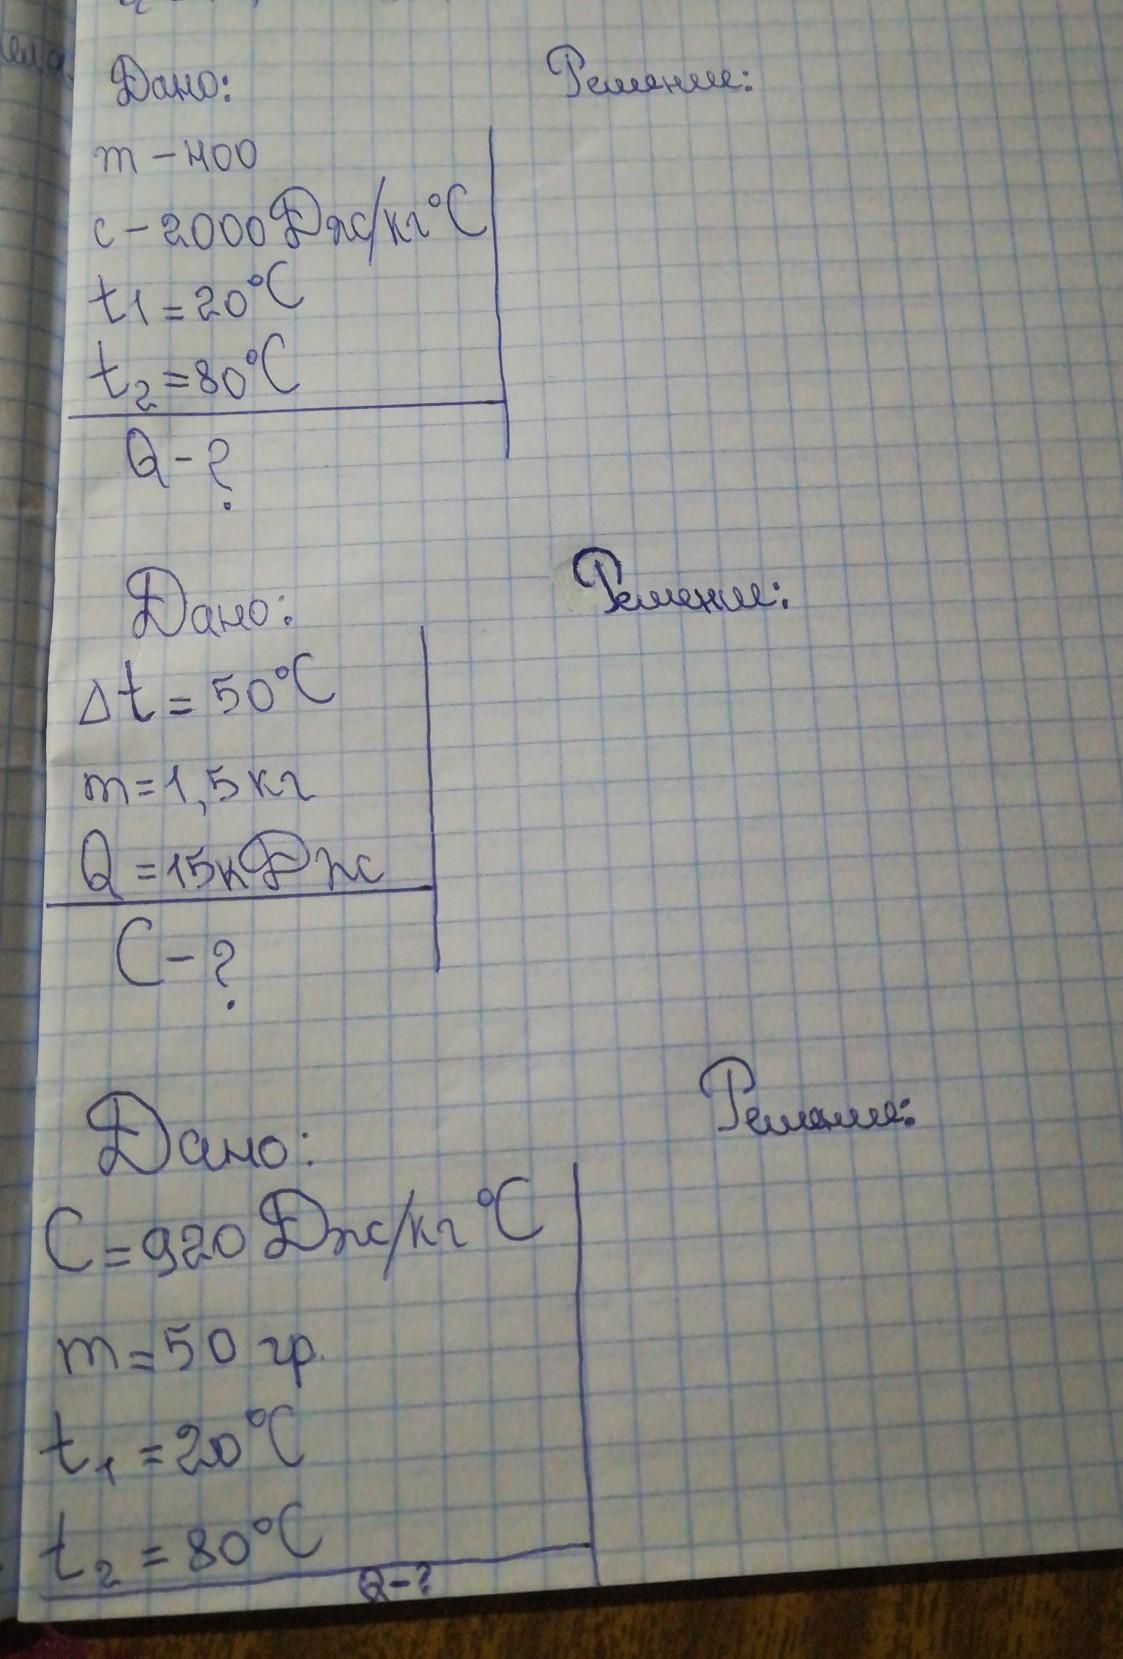 Дано:
Решение:
m - 400
c - 2000 Дж/кг°C
t1 = 20°C
t2 = 80°C
Q - ?
Дано:
Решение:
Δt = 50°C
m = 1,5 кг
Q = 15 кДж
C - ?
Дано:
Решение:
C = 920 Дж/кг °C
m = 50 гр.
t1 = 20°C
t2 = 80°C
Q - ?